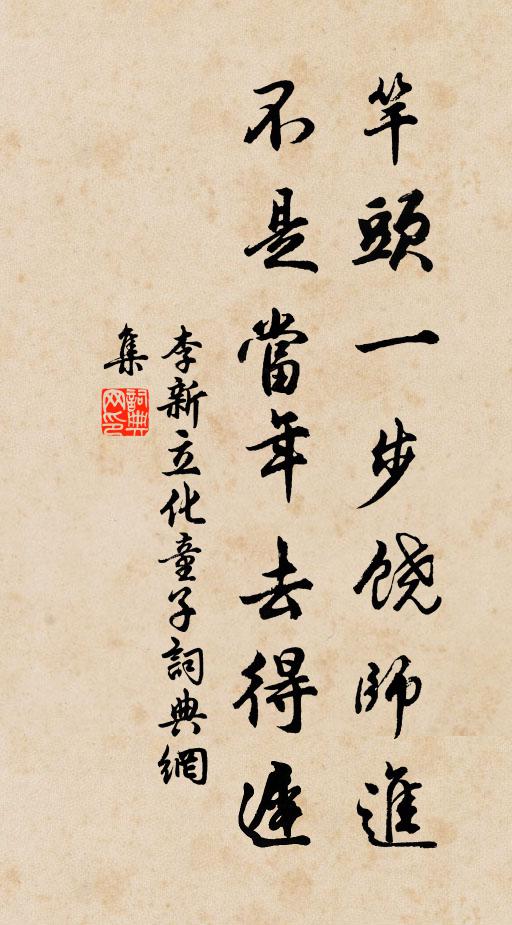 竿頭一步饒師進
不是當年去得遲
李新立化童子詞典網
集
詞典網印